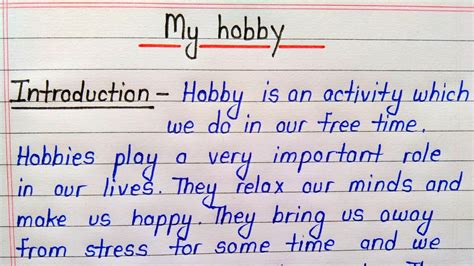 My hobby
Introduction - Hobby is an activity which
we do in our free time.
Hobbies play a very important role
in our lives. They relax our minds and
make us happy. They bring us away
from stress for some time and we